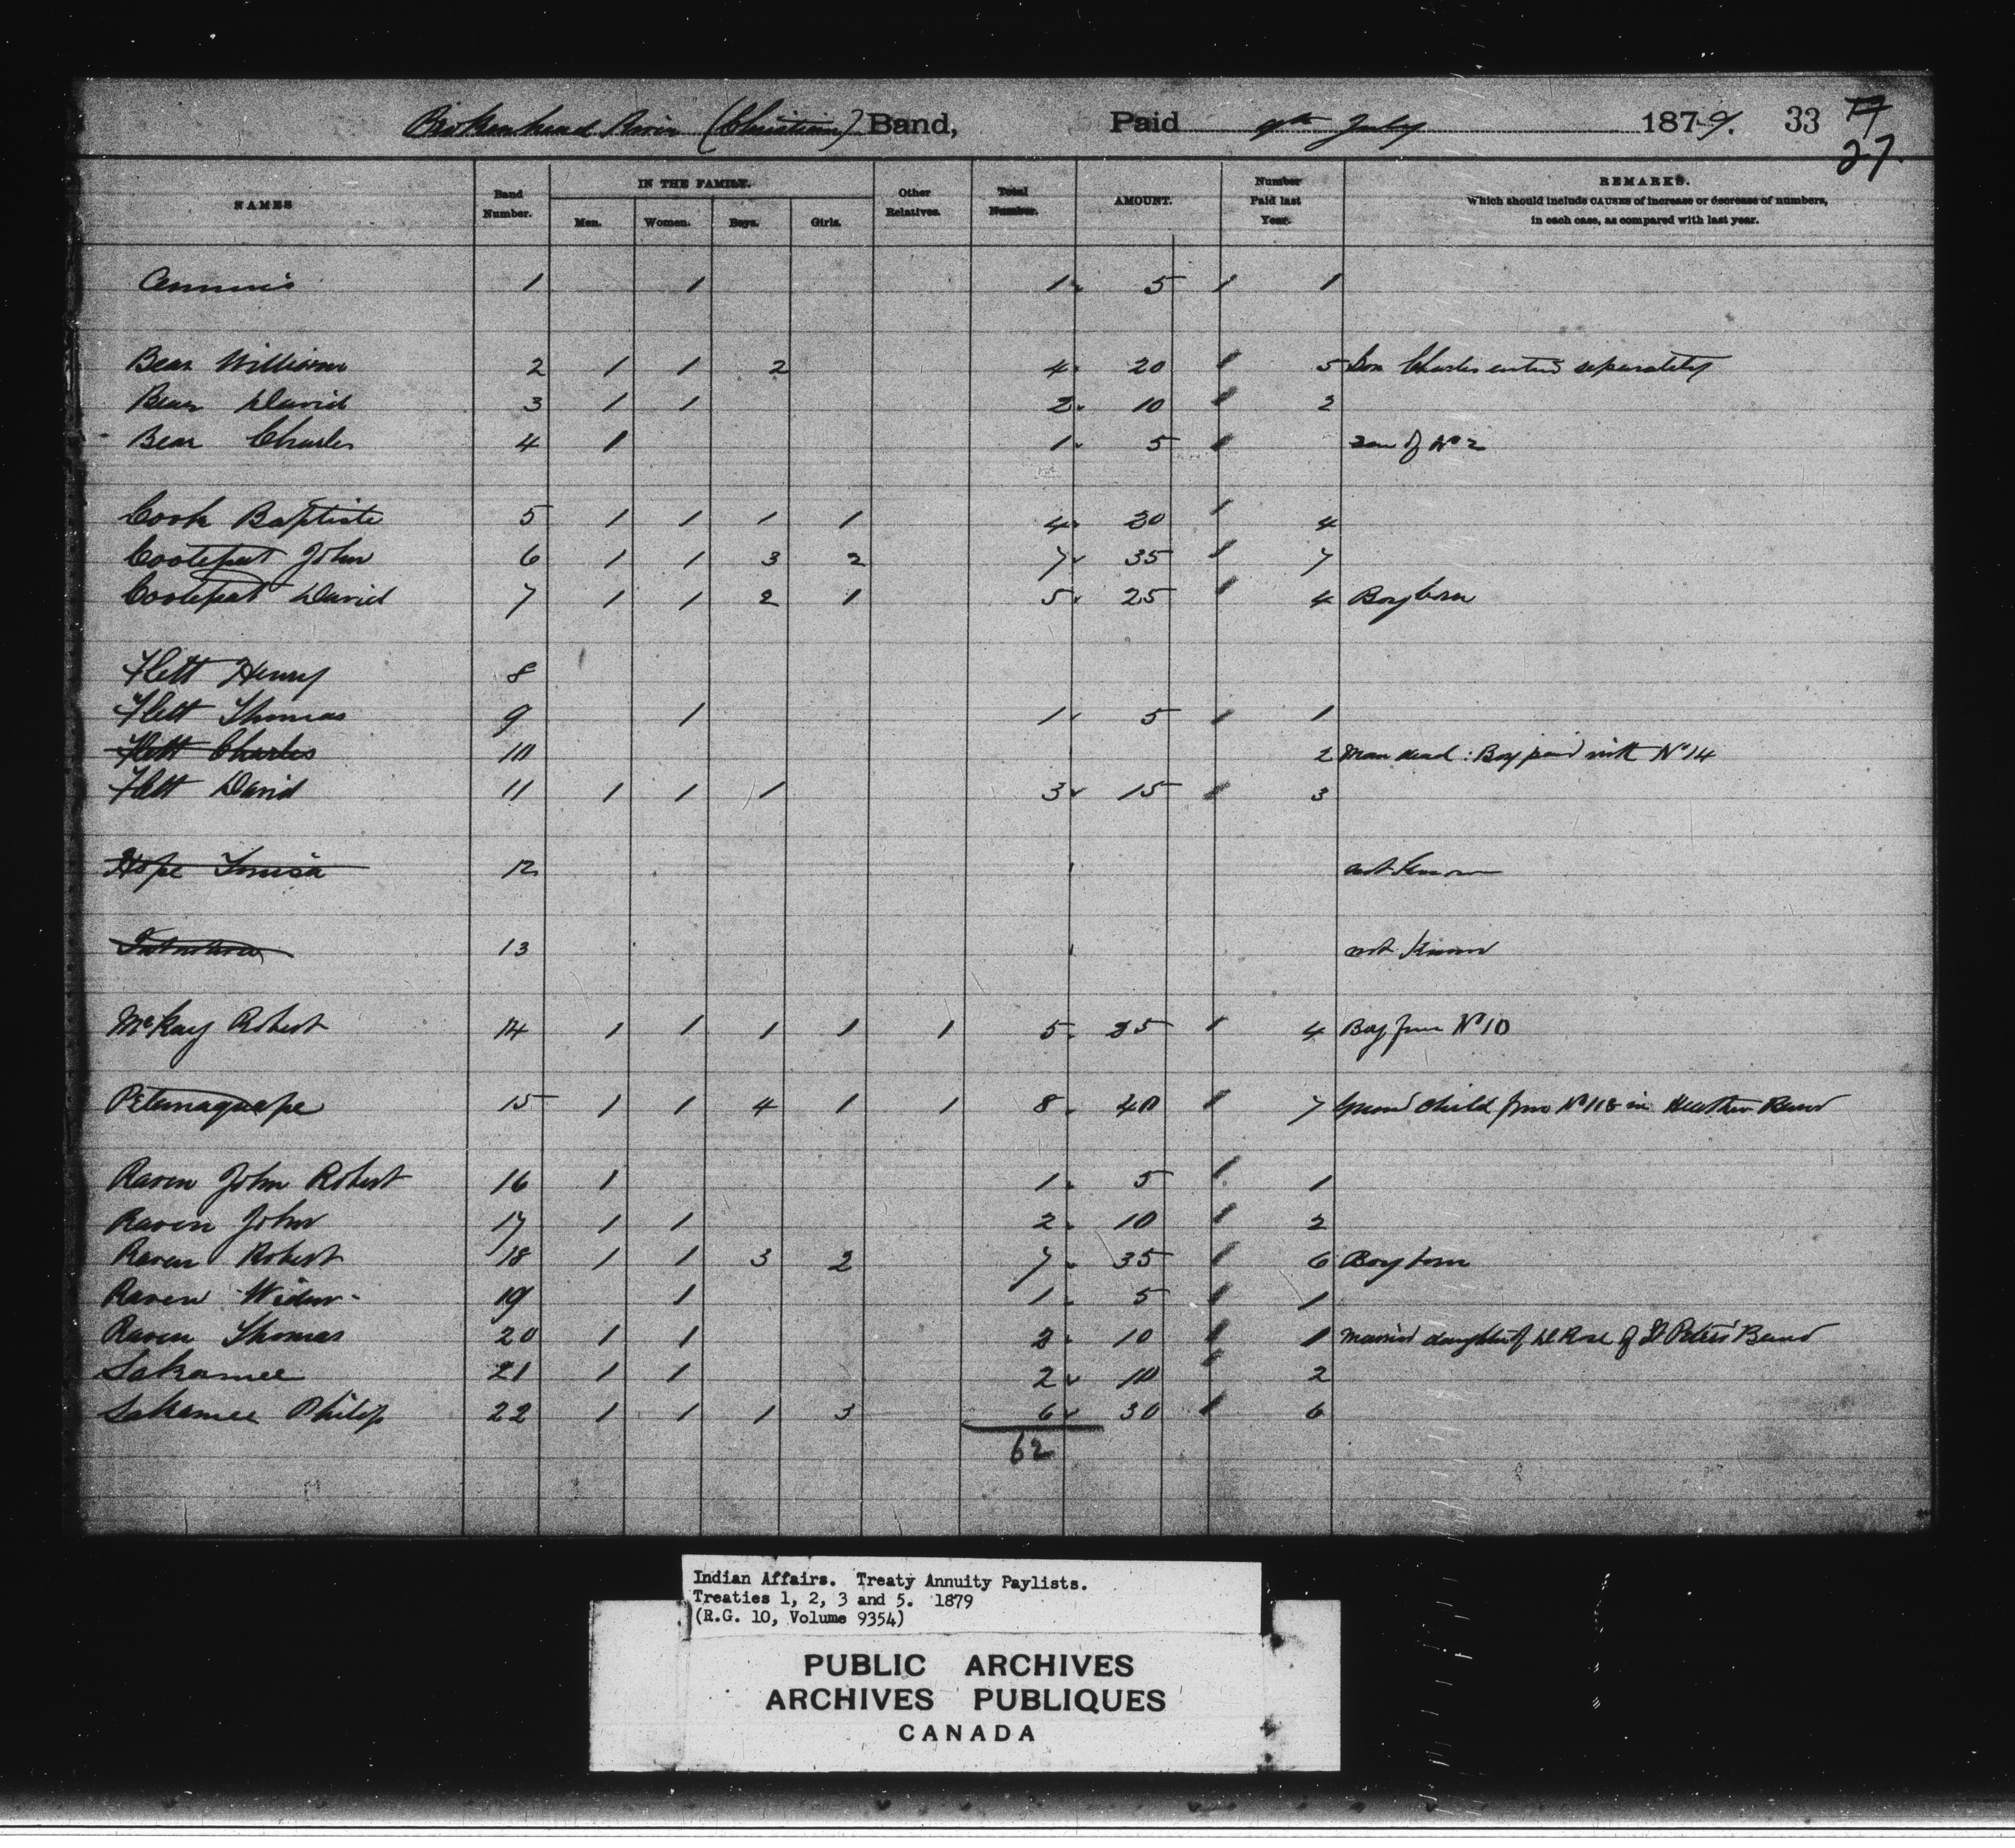 Brokenhead River (Christian) Band, Paid 9th July 1879. 33 17
27.
NAMES Band Number. IN THE FAMILY. Men. Women. Boys. Girls. Other Relatives. Total Number. AMOUNT. Number Paid last Year. REMARKS. Which should include CAUSES of increase or decrease of numbers, in each case, as compared with last year.
1 1 1 5 1 1
Bear William 2 1 1 2 4 20 1 5 Son Charles entered separately
Bear David 3 1 1 2 10 1 2
Bear Charles 4 1 1 5 1 Son of No 2
Cook Baptiste 5 1 1 1 1 4 20 1 4
Cootefeat John 6 1 1 3 2 7 35 1 7
Cootefeat David 7 1 1 2 1 5 25 1 4 Boy born
Flett Henry 8
Flett Thomas 9 1 1 5 1 1
Flett Charles 10 2 Man dead : Boy paid with No 14
Flett David 11 1 1 1 3 15 1 3
Hope Louisa 12 not known
13 not known
McKay Robert 14 1 1 1 1 1 5 25 1 4 Boy from No 10
Petamaquape 15 1 1 4 1 1 8 40 1 7 Grand child from No 118 in Heathen Band
Raven John Robert 16 1 1 5 1 1
Raven John 17 1 1 2 10 1 2
Raven Robert 18 1 1 3 2 7 35 1 6 Boy born
Raven Widow 19 1 1 5 1 1
Raven Thomas 20 1 1 2 10 1 1 Married daughter of D Rose of St Peters Band
Sakamee 21 1 1 2 10 1 2
Sakamee Philip 22 1 1 1 3 6 30 1 6
62
Indian Affairs. Treaty Annuity Paylists.
Treaties 1, 2, 3 and 5. 1879
(R.G. 10, Volume 9354)
PUBLIC ARCHIVES
ARCHIVES PUBLIQUES
CANADA